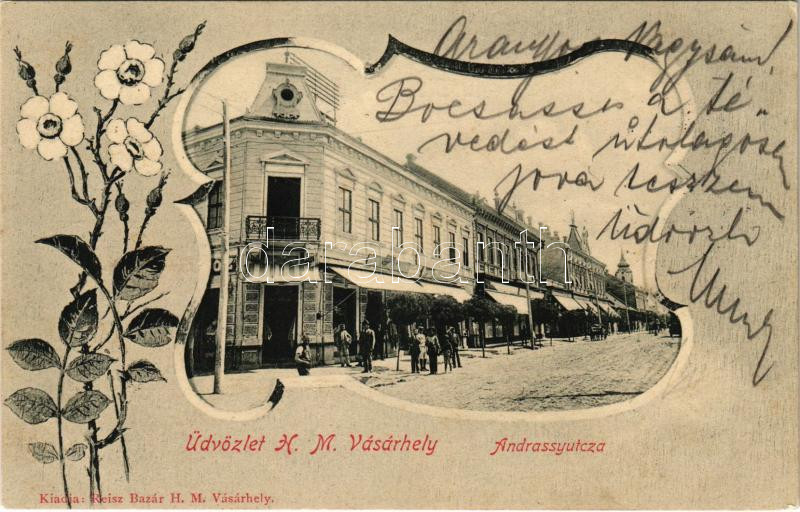 Aranyos
Bocsásson a té-
vedést utólagosan
jóvá teszem
Üdvözli
darabanth
Üdvözlet H. M. Vásárhely Andrassyutcza
Kiadja: Reisz Bazár H. M. Vásárhely.